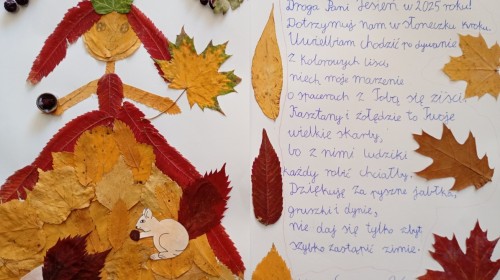 Droga Pani Jesień w 2025 roku!
Dotrzymuj nam w słoneczku kroku.
Uwielbiam chodzić po dywanie
z kolorowych liści,
niech moje marzenie
o spacerach z Tobą się ziści.
Kasztany i żołędzie to Twoje
wielkie skarby,
bo z nimi ludziki
każdy robić chciałby.
Dziękuję za pyszne jabłka,
gruszki i dynie,
nie daj się tylko zbyt
szybko zastąpić zimie.